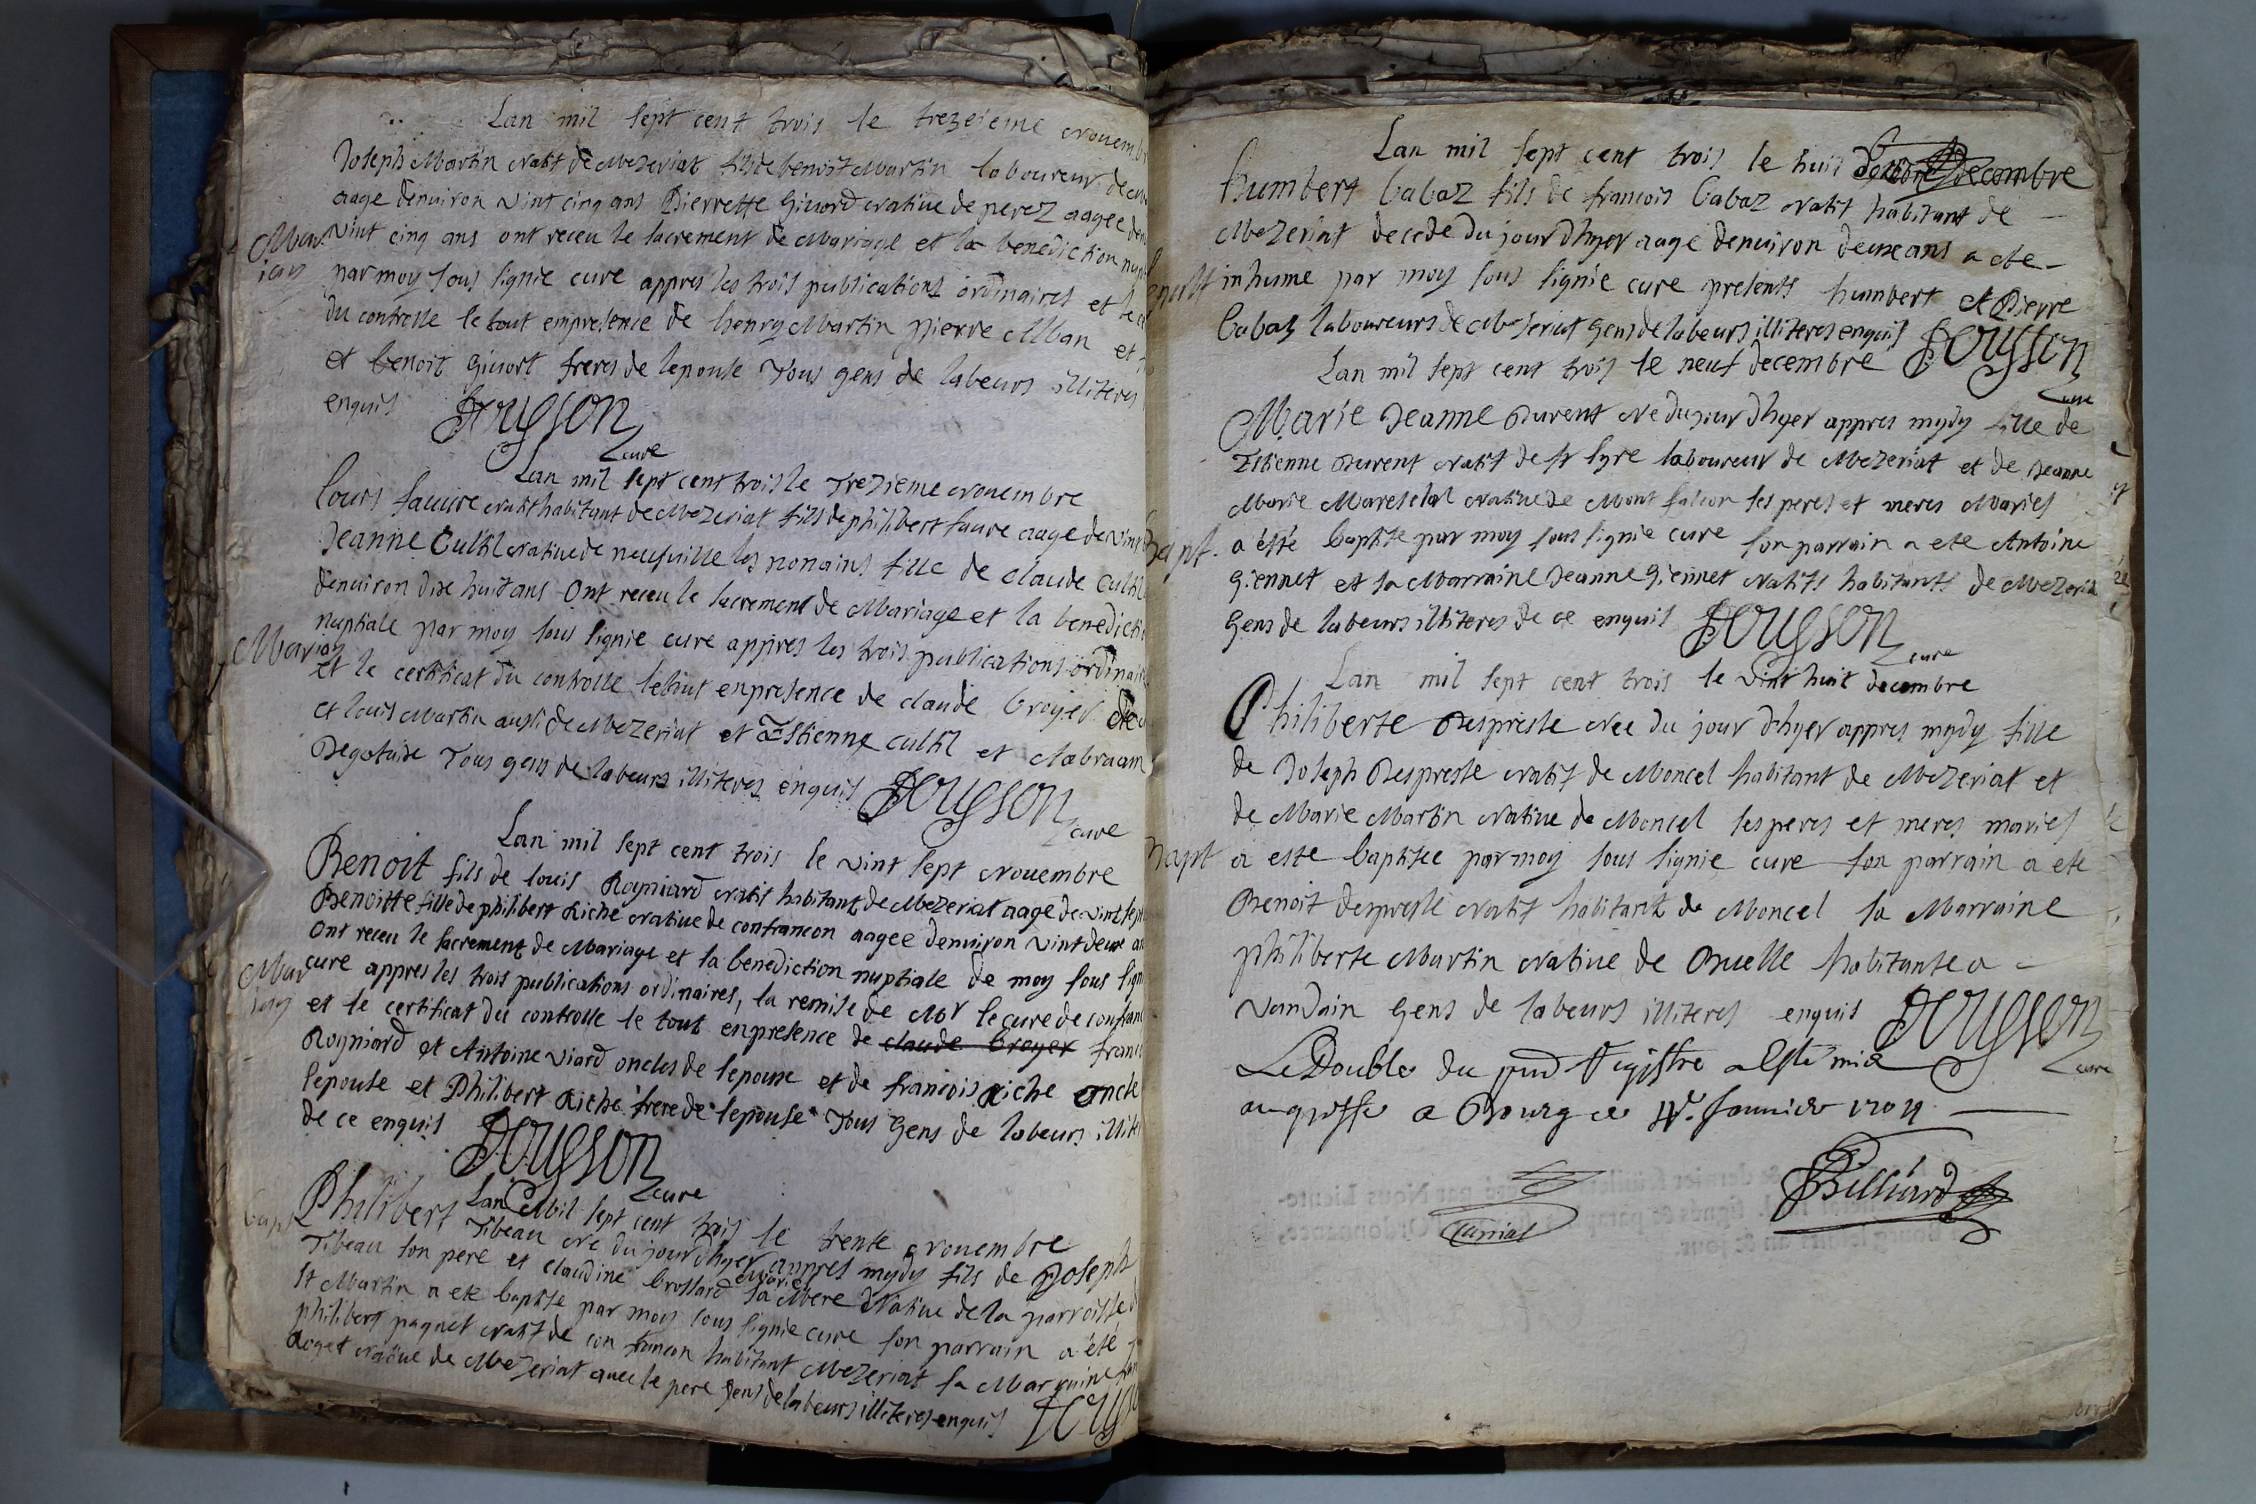 Lan mil sept cent trois le trezeieme novembr
Joseph Martin natif de Mezeriat fils de benoit Martin laboureur de
aage denuiron vint cinq ans Pierrette Giuord natiue de perez aagee den
Mari vint cinq ans ont receu le sacrement de Mariage et la benediction nup
iag par moy sous signie cure appres les trois publications ordinaires et le
du controlle le tout empresence de henry Martin pierre Alban et
et benoit giuort freres de lepouse Tous gens de labeurs illiteres
enquis Fousson
cure
Lan mil sept cent trois le Trezieme nouembre
louis fauure natif habitant de Mezeriat fils de philibert faure aage de vint
Jeanne Cultil natiue de neufuille les nonains fille de claude Cultil
denuiron dix huit ans Ont receu le sacrement de Mariage et la benedicti
nuptiale par moy sous signie cure appres les trois publications ordinair
Mariag et le certificat du controlle le tout enpresence de claude broyer
et louis Martin aussi de Mezeriat et Estienne cultil et Abraam
Degotaise Tous gens de labeurs illiteres enquis Fousson
cure
Lan mil sept cent trois le vint sept nouembre
Benoit fils de louis Rogniard natif habitant de Mezeriat aage de vint sept
Benoitte fille de philibert Riche natiue de confrancon aagee denuiron vint deux an
Ont receu le sacrement de Mariage et la benediction nuptiale de moy sous sign
Mar cure appres les trois publications ordinaires, la remise de Mor le cure de confran
iag et le certificat du controlle le tout enpresence de claude broyer franc
Rogniard et Antoine viard oncles de lepoux et de francois Riche oncle
lepouse et Philibert Riche frere de lepouse Tous gens de labeurs illite
de ce enquis Fousson
cure
Lan Mil sept cent trois le trente nouembre
bapt Philibert Tibeau ne du jour dhyer appres mydy fils de Joseph
Tibeau son pere et claudine brossard sa Mere Natiue de la parroisse d
St Martin a ete baptise par moy sous signie cure son parrain a été
philibert paquet natif de con francon habitant Mezeriat la Marraine
Roget natiue de Mezeriat auec le pere gens de labeurs illiteres enquis Fousso
Lan mil sept cent trois le huit decembre
humbert Cabaz fils de francois Cabaz natif habitant de
Mezeriat decede du jour dhyer aage denuiron deux ans a ete
inhume par moy sous signie cure presents humbert et Pierre
Cabaz laboureurs de Mezeriat gens de labeurs illiteres enquis Fousson
cure
Lan mil sept cent trois le neuf decembre
Marie Jeanne Durent ne du jour dhyer appres mydy fille de
Estienne Durent natif de st Cyre laboureur de Mezeriat et de Jeanne
Marie Mareschal natiue de Mont falcon ses peres et meres Maries
Bapt. a été baptise par moy sous signie cure son parrain a ete Antoine
Giennet et la Marraine Jeanne Giennet natifs habitants de Mezeriat
gens de labeurs illiteres de ce enquis Fousson
cure
Lan mil sept cent trois le vint huit decembre
Philiberte Despresle nee du jour dhyer appres mydy fille
de Joseph Despresle natif de Moncel habitant de Mezeriat et
de Marie Martin natiue de Moncel ses peres et meres maries
Bapt a este baptisee par moy sous signie cure son parrain a ete
Benoit despresle natif habitant de Moncel la Marraine
philiberte Martin natiue de Buelle habitante a
vandain gens de labeurs illiteres enquis Fousson
cure
Le Double du pnt Registre a Esté mis
au greffe a Bourg ce Januier 1704
Billiard